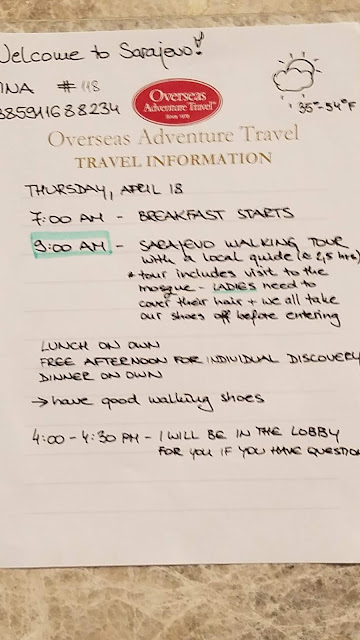 Welcome to Sarajevo!
INA # 118
385911688234
35°-54°F
Overseas
Adventure Travel
Since 1978
Overseas Adventure Travel
TRAVEL INFORMATION
THURSDAY, APRIL 18
7:00 AM - BREAKFAST STARTS
9:00 AM - SARAJEVO WALKING TOUR
with a local guide (@ 2,5 hrs)
* tour includes visit to the
mosque - LADIES need to
cover their hair + we all take
our shoes off before entering
LUNCH ON OWN
FREE AFTERNOON FOR INDIVIDUAL DISCOVERY
DINNER ON OWN
→ have good walking shoes
4:00 - 4:30 PM - I WILL BE IN THE LOBBY
FOR YOU IF YOU HAVE QUESTION